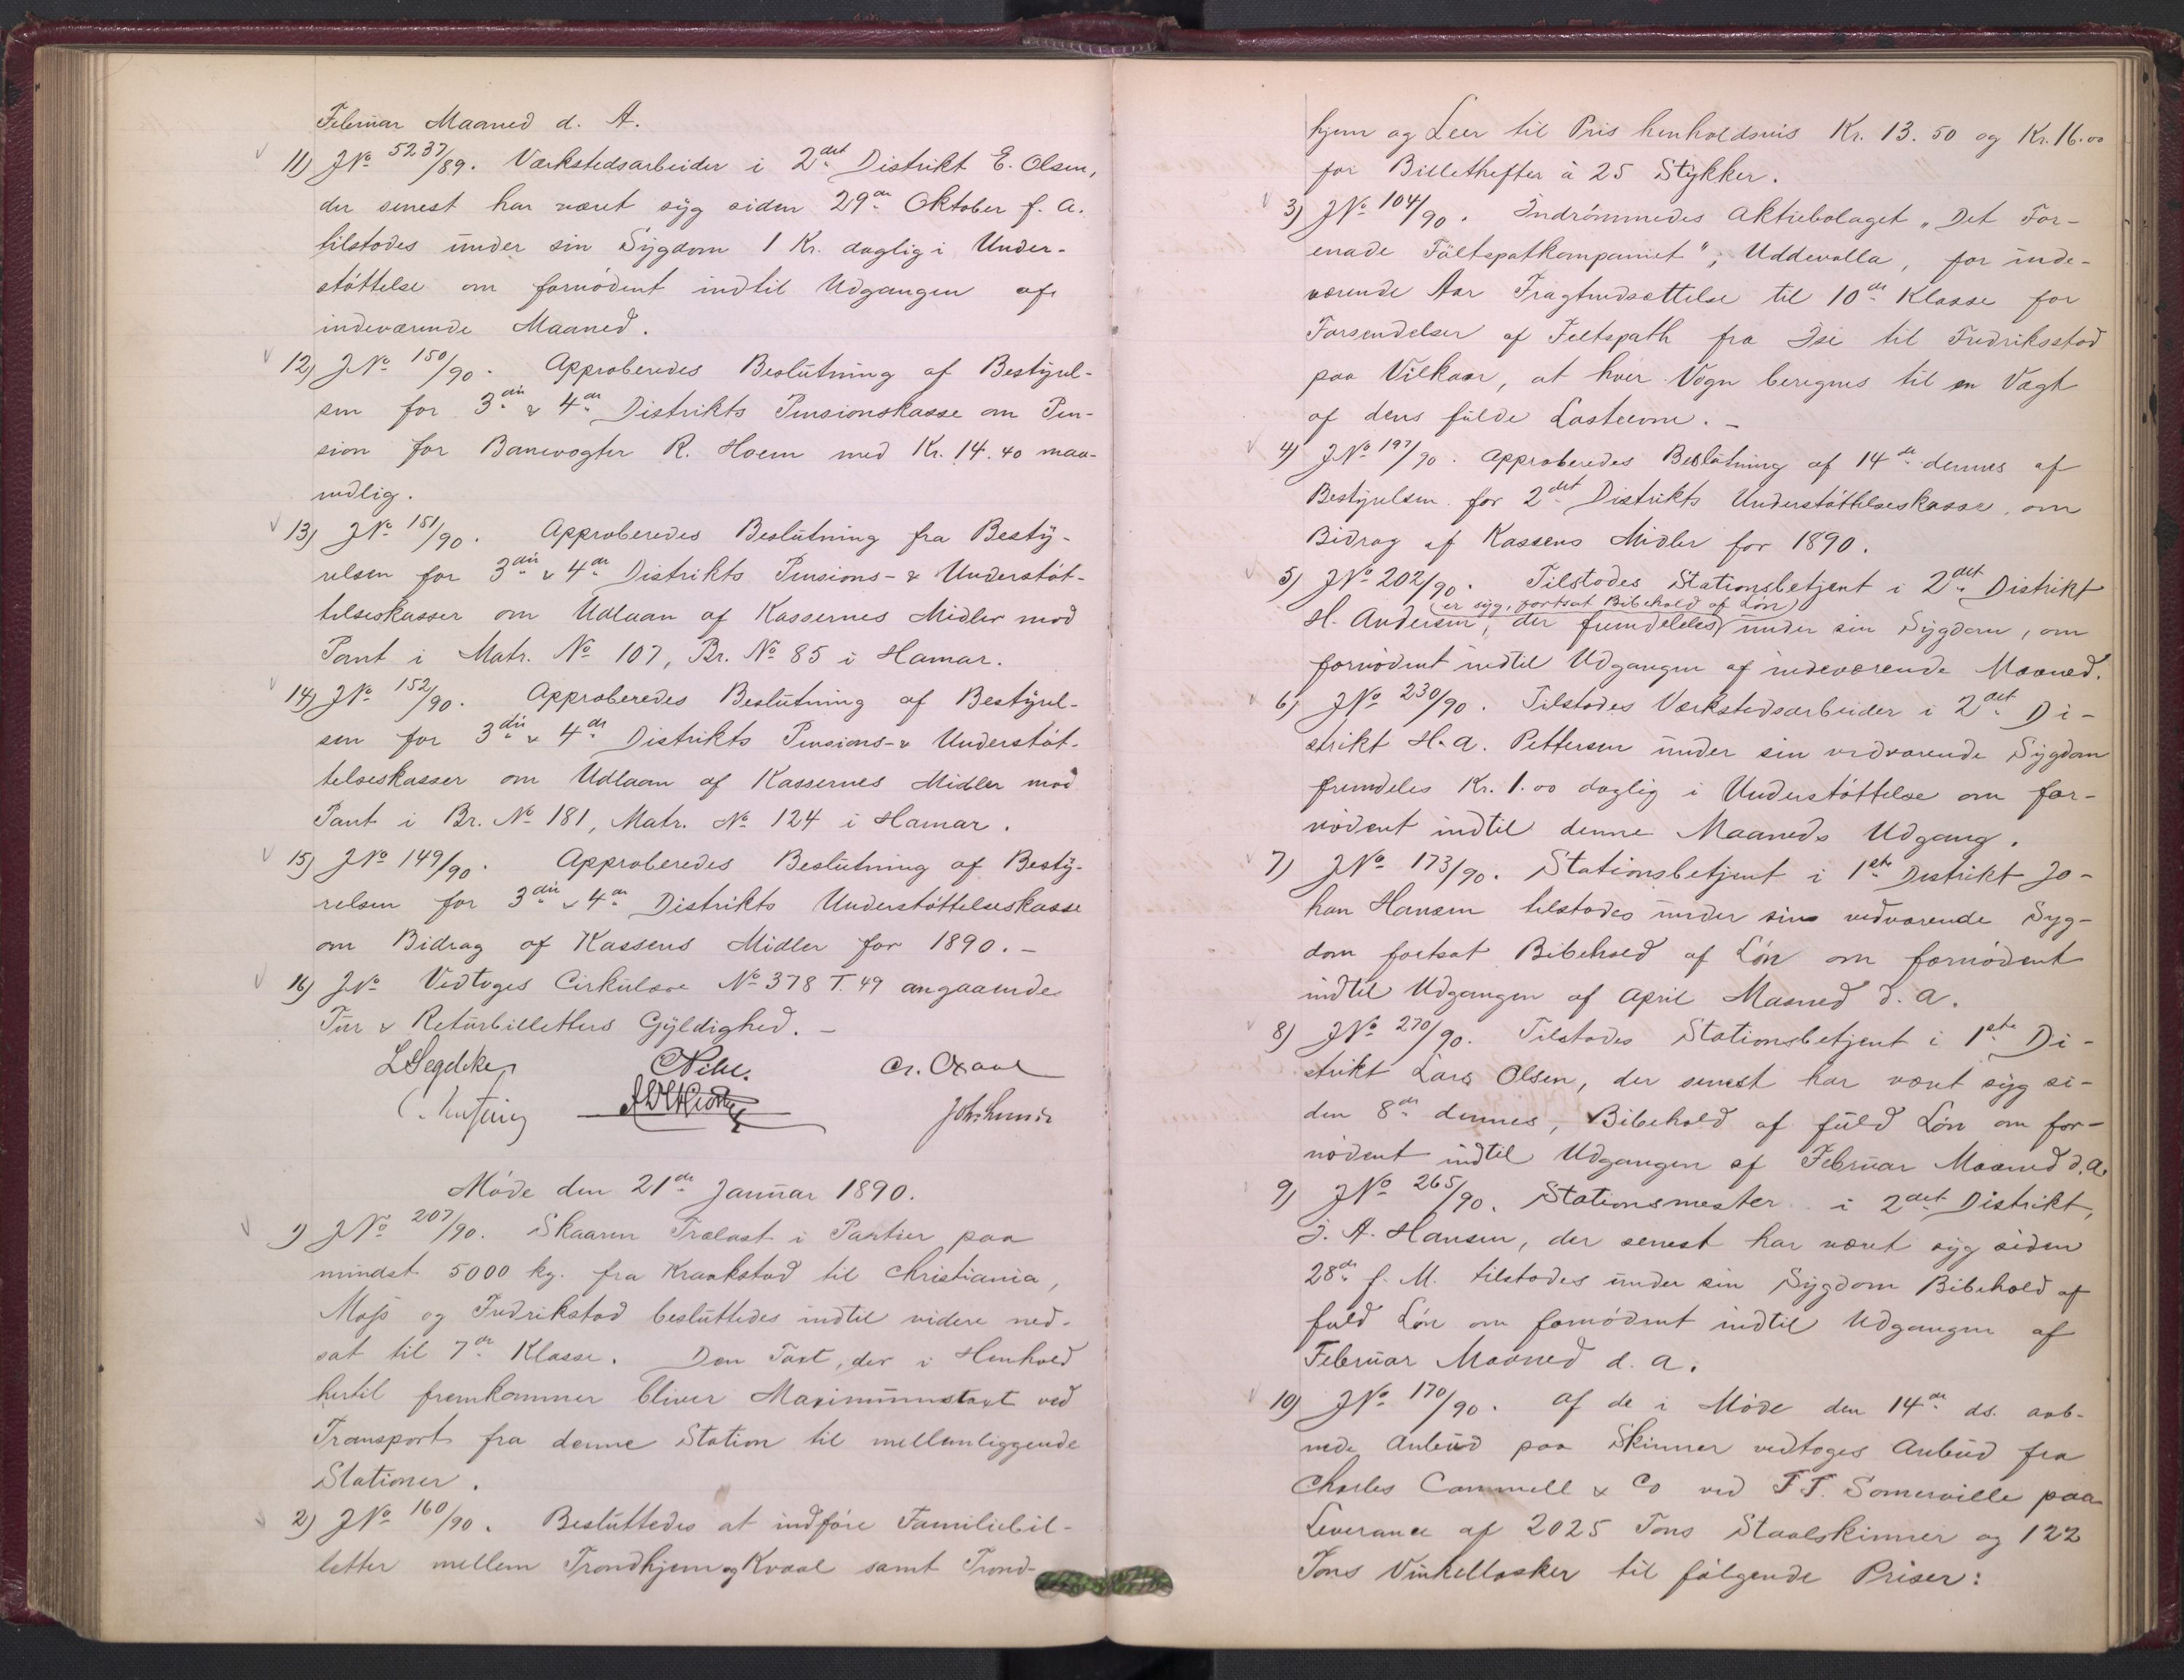 Februar Maaned d. A.
11) JNo 5237/89. Værkstedsarbeider i 2det Distrikt E. Olsen,
der senest har været syg siden 29de Oktober f. A.
tilstodes under sin Sygdom 1 Kr. daglig i Under-
støttelse om fornødent indtil Udgangen af
indeværende Maaned.
12) JNo 150/90. Approberedes Beslutning af Bestyrel-
sen for 3die & 4de Distrikts Pensionskasse om Pen-
sion for Banevogter R. Hoem med Kr. 14.40 maa-
nedlig.
13) JNo 151/90. Approberedes Beslutning fra Besty-
relsen for 3die & 4de Distrikts Pensions- & Understøt-
telseskasser om Udlaan af Kassernes Midler mod
Pant i Matr. No 107, Br. No 85 i Hamar.
14) JNo 152/90. Approberedes Beslutning af Bestyrel-
sen for 3die & 4de Distrikts Pensions- & Understøt-
telseskasser om Udlaan af Kassernes Midler mod
Pant i Br. No 181, Matr. No 124 i Hamar.
15) JNo 149/90. Approberedes Beslutning af Besty-
relsen for 3die & 4de Distrikts Understøttelseskasse
om Bidrag af Kassens Midler for 1890. -
16) JNo Vedtoges Cirkulære No 378 T. 49 angaaende
Tur & Returbilletters Gyldighed. -
LSegelcke CPihl.
Joh. Lund
Møde den 21de Januar 1890.
1) JNo 207/90. Skaaren Trælast i Partier paa
mindst 5000 kg. fra Kraakstad til Christiania,
Moss og Fredrikstad besluttedes indtil videre ned-
sat til 7de Klasse. Den Taxt, der i Henhold
hertil fremkommer bliver Maximumstaxt ved
Transport fra denne Station til mellemliggende
Stationer.
2) JNo 160/90. Besluttedes at indføre Familiebil-
letter mellem Trondhjem og Kvaal samt Trond-
hjem og Leer til Pris henholdsvis Kr. 13.50 og Kr. 16.00
for Billethefter à 25 Stykker.
3) JNo 104/90. Indrømmedes Aktiebolaget "Det For-
enade Fältspatkompaniet", Uddevalla, for inde-
værende Aar Fragtnedsættelse til 10de Klasse for
Forsendelser af Feltspath fra Ise til Fredriksstad
paa Vilkaar, at hver Vogn beregnes til en Vægt
af dens fulde Lasteevne. -
4) JNo 197/90. Approberedes Beslutning af 14de dennes af
Bestyrelsen for 2det Distrikts Understøttelseskasse om
Bidrag af Kassens Midler for 1890.
5) JNo 202/90. Tilstodes Stationsbetjent i 2det Distrikt
(er syg, fortsat Bibehold af Løn)
H. Andersen, der fremdeles under sin Sygdom, om
fornødent indtil Udgangen af indeværende Maaned.
6) JNo 230/90. Tilstodes Værkstedsarbeider i 2det Di-
strikt H. A. Pettersen under sin vedvarende Sygdom
fremdeles Kr. 1.00 daglig i Understøttelse om for-
nødent indtil denne Maaneds Udgang.
7) JNo 173/90. Stationsbetjent i 1ste Distrikt Jo-
han Hansen tilstodes under sin vedvarende Syg-
dom fortsat Bibehold af Løn om fornødent
indtil Udgangen af April Maaned d. A.
8) JNo 270/90. Tilstodes Stationsbetjent i 1ste Di-
strikt Lars Olsen, der senest har været syg si-
den 8de dennes, Bibehold af fuld Løn om for-
nødent indtil Udgangen af Februar Maaned d. A.
9) JNo 265/90. Stationsmester i 2det Distrikt,
J. A. Hansen, der senest har været syg siden
28de f. M. tilstodes under sin Sygdom Bibehold af
fuld Løn om fornødent indtil Udgangen af
Februar Maaned d. A.
10) JNo 170/90. Af de i Møde den 14de ds. aab-
nede Anbud paa Skinner vedtoges Anbud fra
Charles Cammell & Co ved T. T. Somerville paa
Leverance af 2025 Tons Staalskinner og 122
Tons Vinkellasker til følgende Priser: